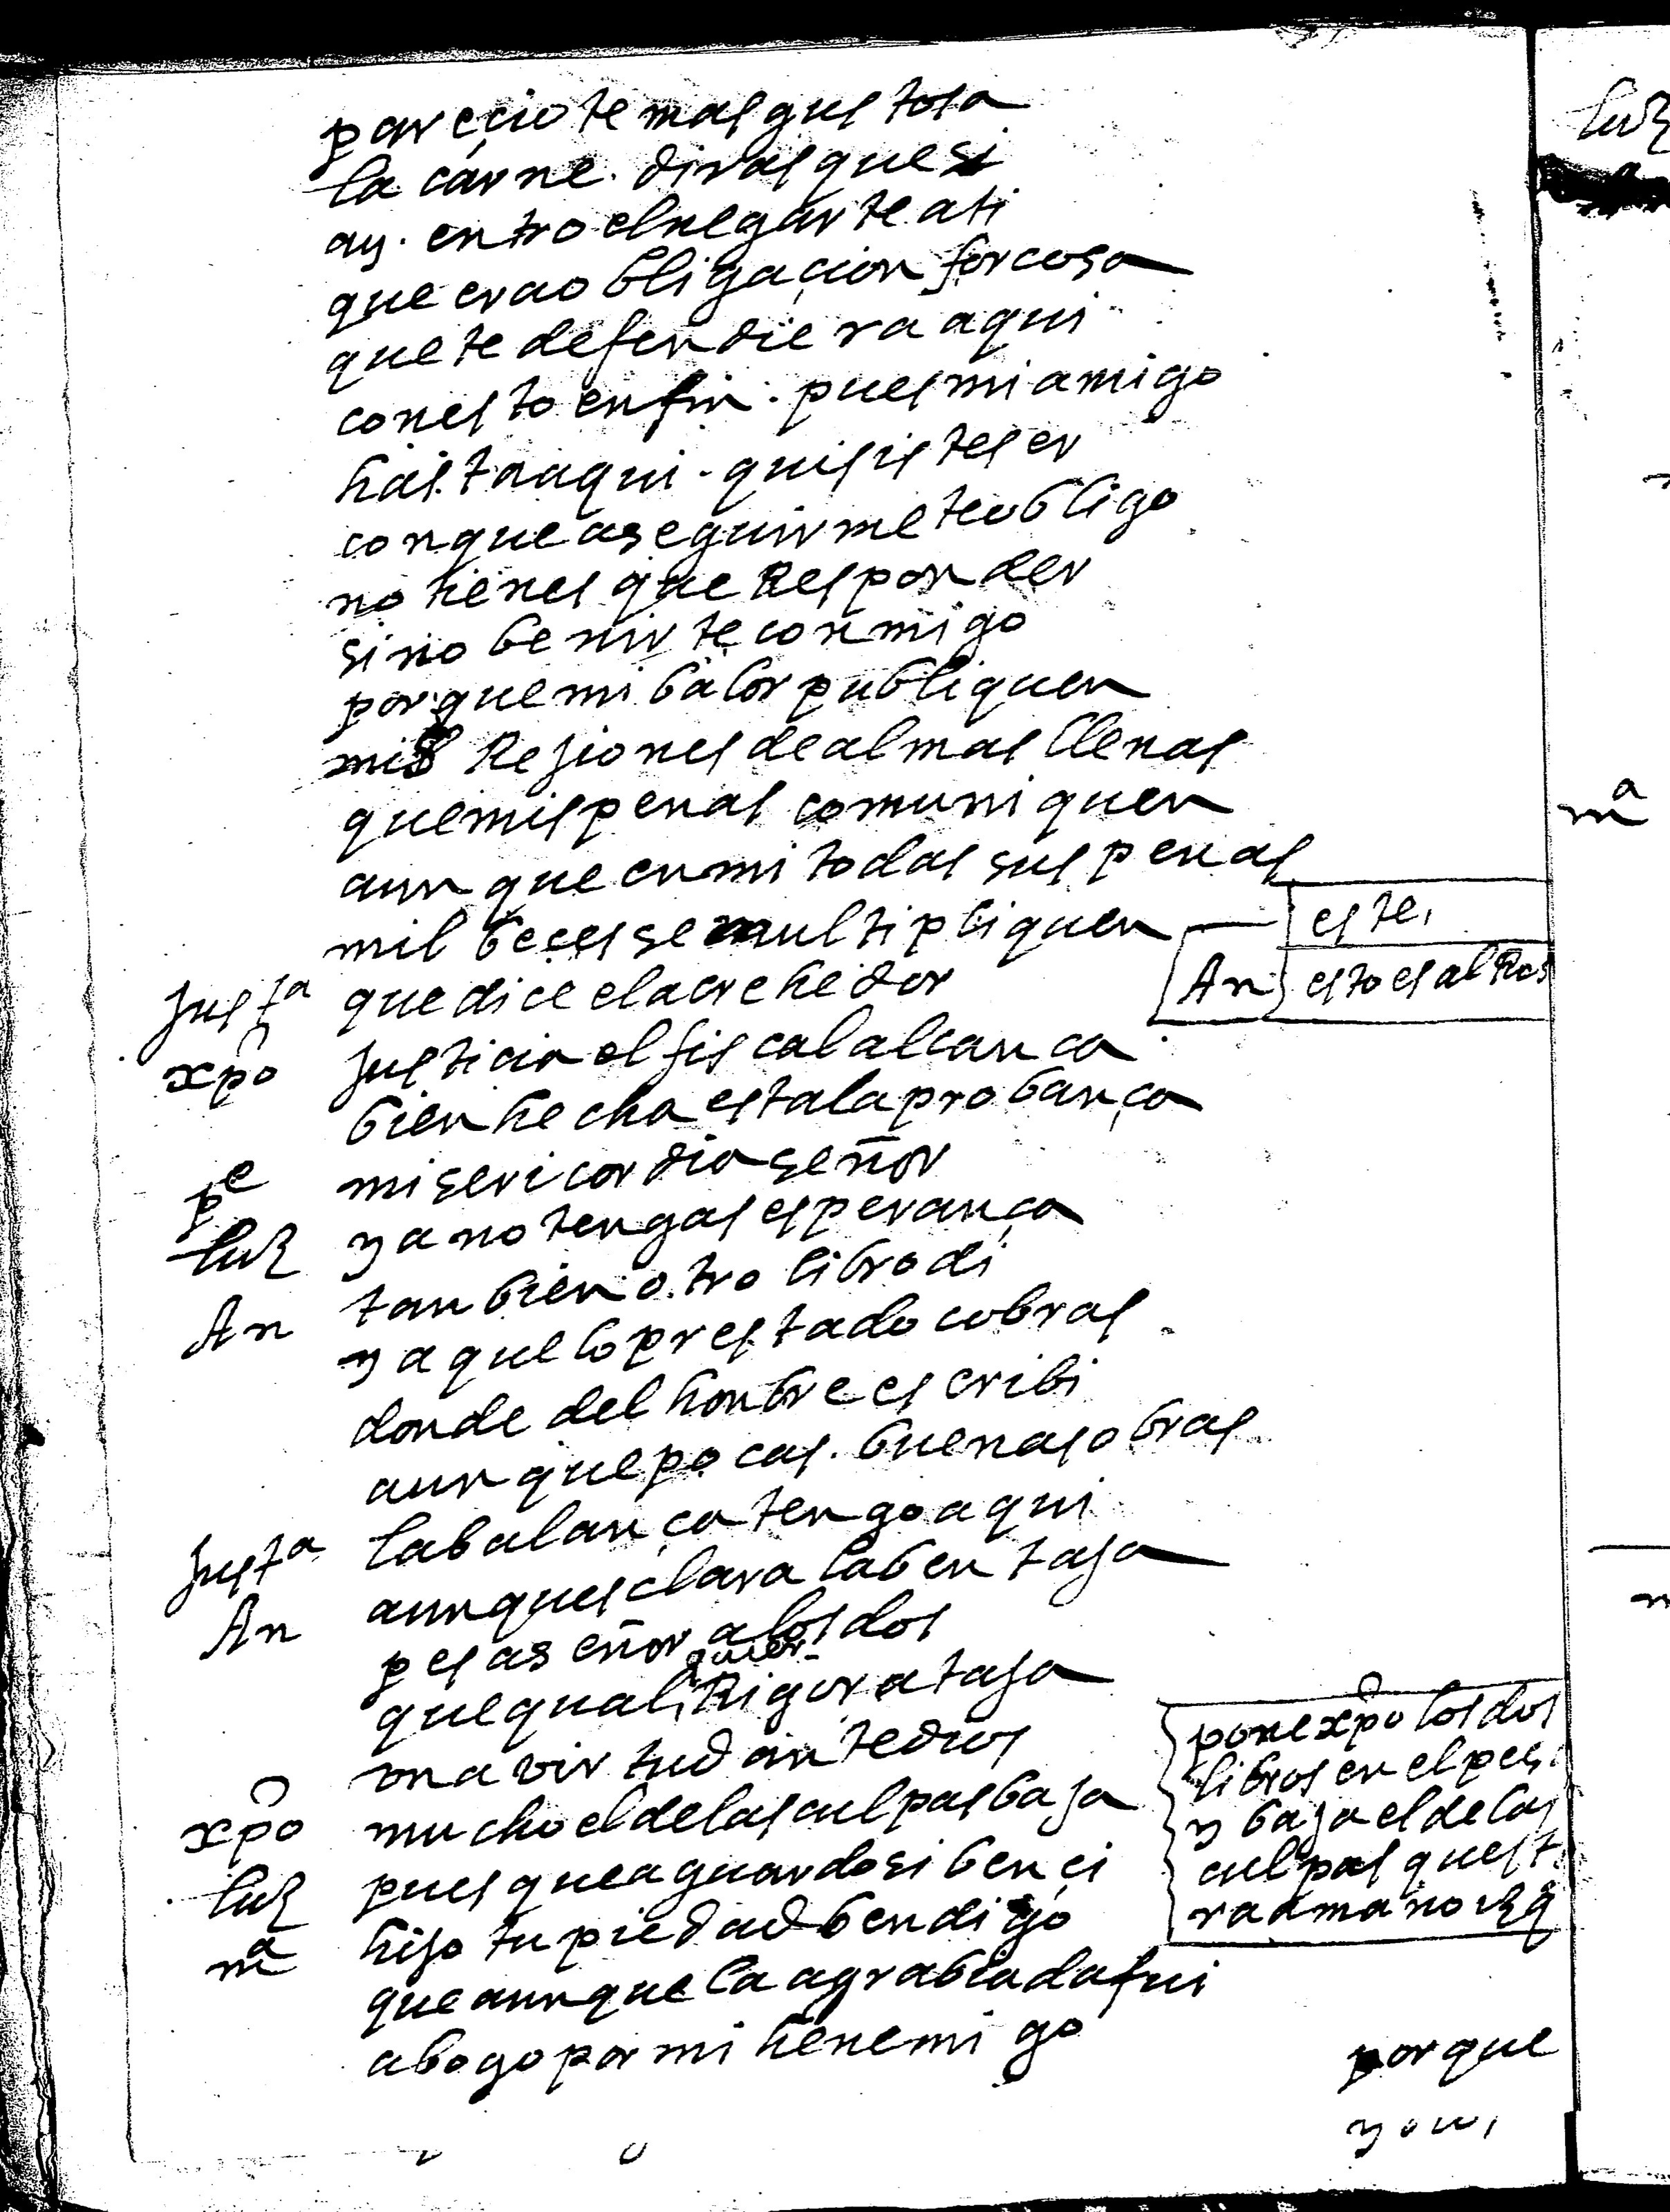 pareciote mas gustosa
la carne. diras que si
ay. entro el negarte a ti
que era obligaçion forcosa
que te defendiera aqui
con esto en fin. pues mi amigo
hasta aqui. quisiste ser
con que a seguirme te obligo
no tienes que Responder
sino benirte conmigo
porque mi balor publiquen
mis Rejiones de almas llenas
que mis penas comuniquen
aunque en mi todas sus penas
mil beçes se multipliquen
este,
Justa que dice el acrehedor
An esto es al Ros
xpo Justicia el fiscal alcança
bien hecha esta la probança
pe misericordia señor
luz ya no tengas esperança
An tanbien otro libro di
ya que lo prestado cobras
donde del honbre escribi
aunque pocas. buenas obras
Justa la balança tengo aqui
An aunques clara la bentaja
pesa señor a los dos
que qualquier Rigor ataja
una virtud ante dios
xpo mucho el de las culpas baja
luz pues que aguardo si bençi
ma hijo tu piedad bendigo
que aunque la agrabiada fui
abogo por mi henemigo
pone xpo los dos
libros en el pes
y baja el de las
culpas quest
porque